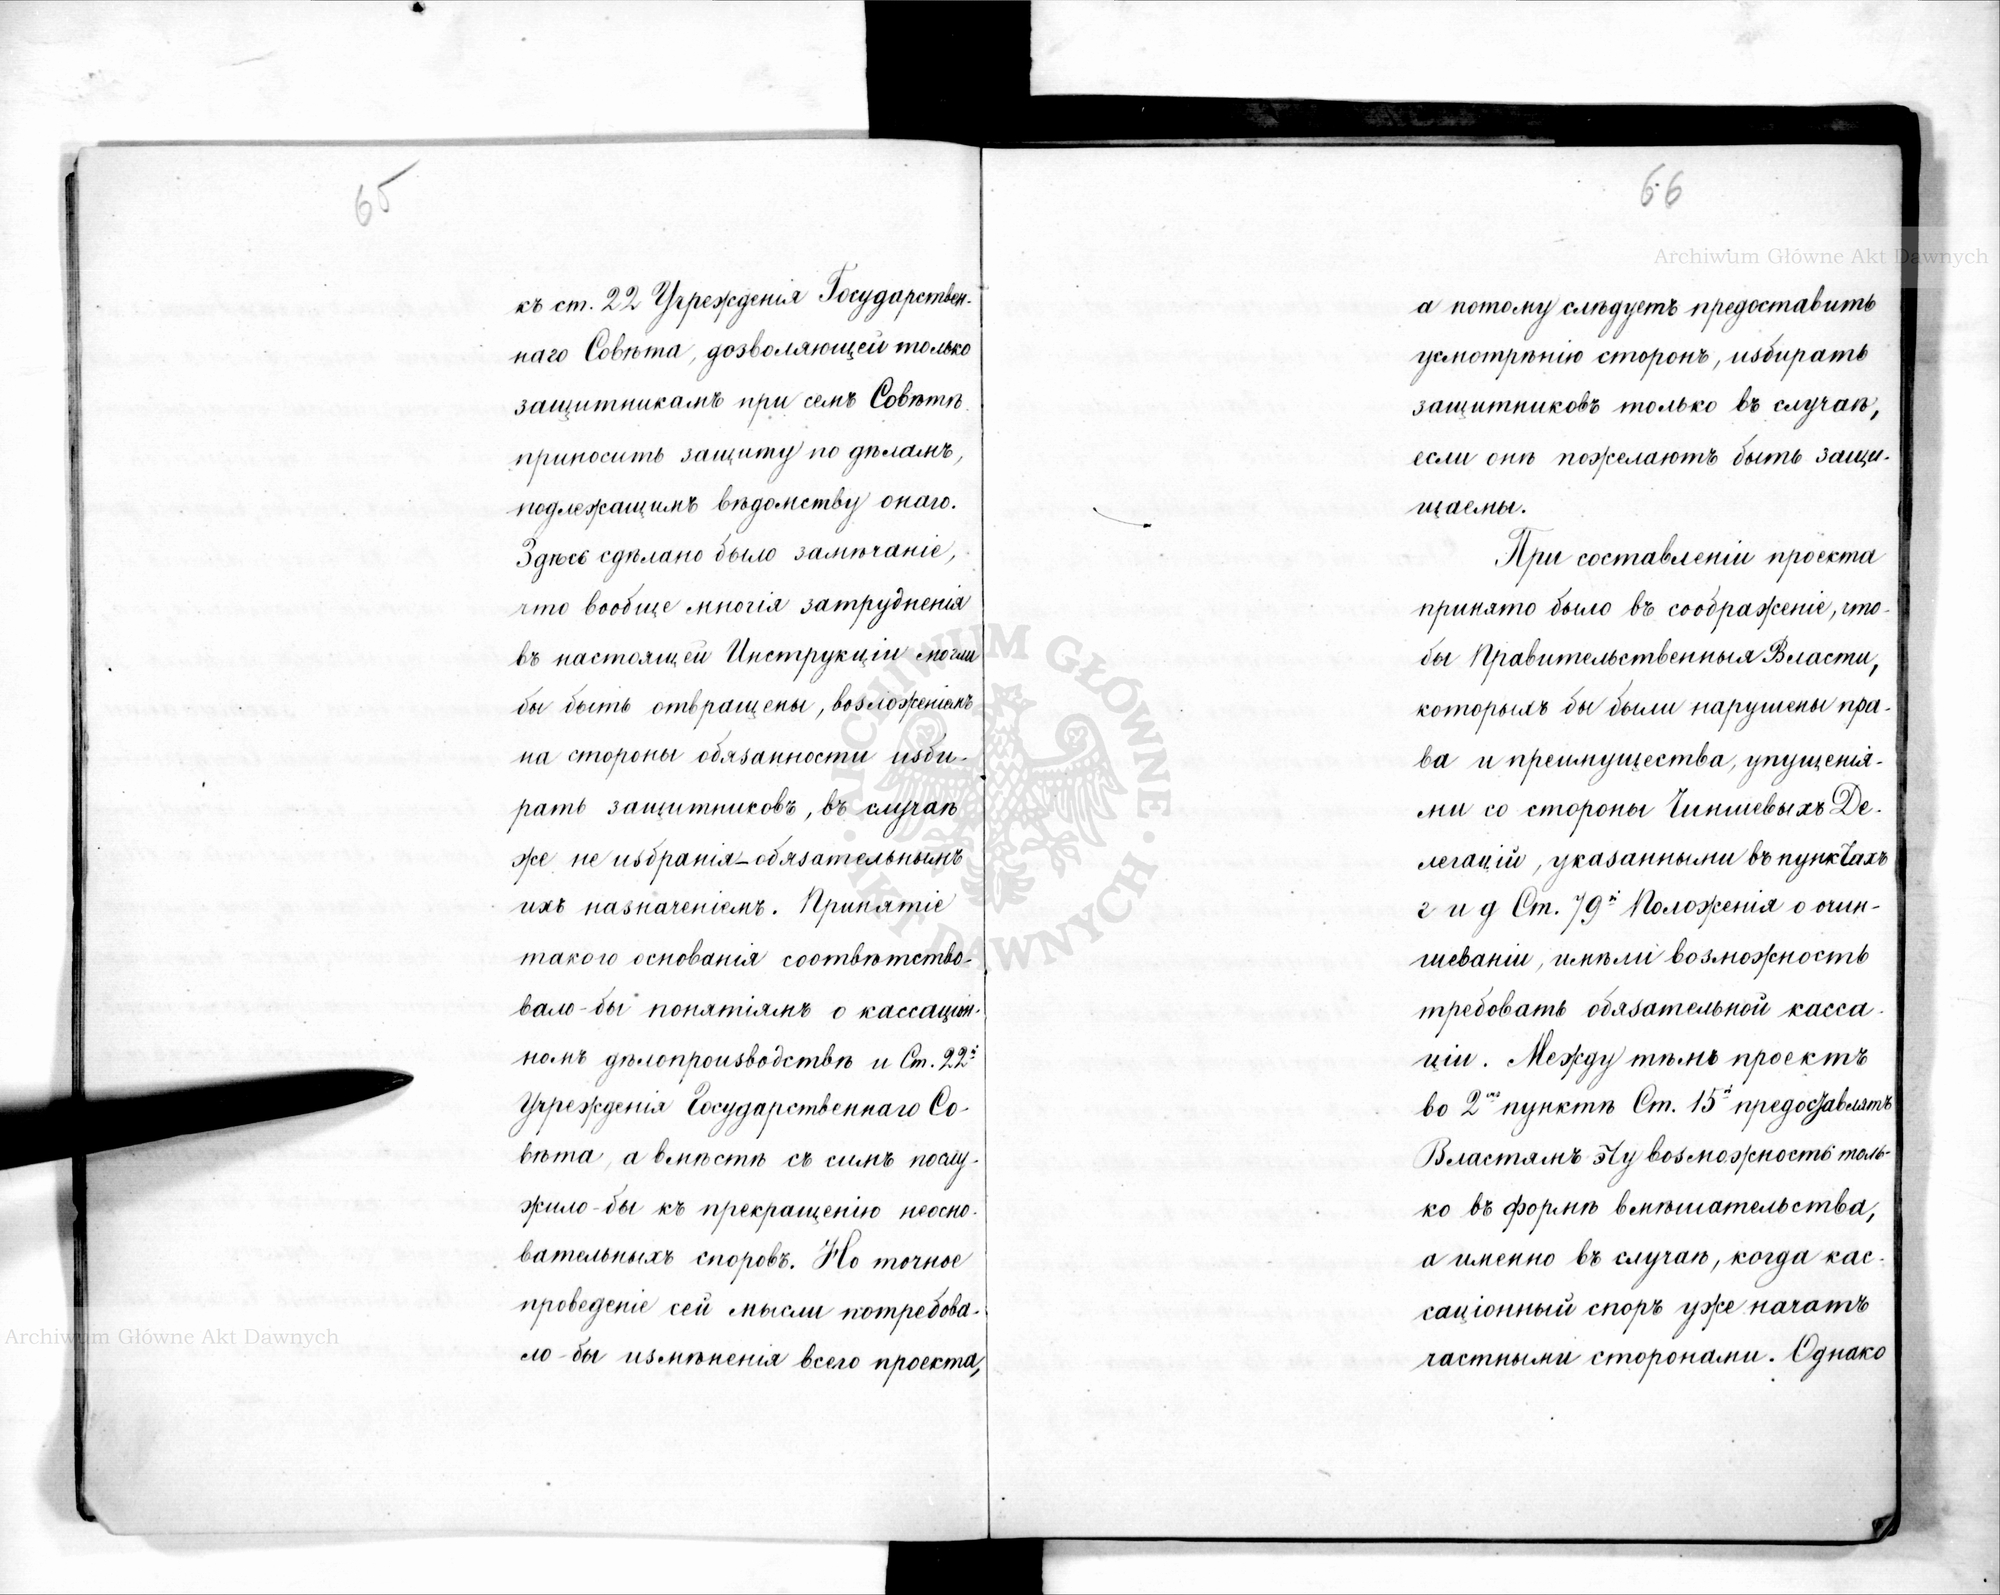 65
къ ст. 22 Учрежденія Государствен-
наго Совѣта, дозволяющей только
защитникамъ при семъ Совѣтѣ
приносить защиту по дѣламъ,
подлежащимъ вѣдомству онаго.
Здѣсь сдѣлано было замѣчаніе,
что вообще многія затрудненія
въ настоящей Инструкціи могли
бы быть отвращены, возложеніемъ
на стороны обязанности изби-
рать защитниковъ, въ случаѣ
же не избранія - обязательнымъ
ихъ назначеніемъ. Принятіе
такого основанія соотвѣтство-
вало-бы понятіямъ о кассаціон-
номъ дѣлопроизводствѣ и Ст. 22й
Учрежденія Государственнаго Со-
вѣта, а вмѣстѣ съ симъ послу-
жило-бы къ прекращенію неосно-
вательныхъ споровъ. Но точное
проведеніе сей мысли потребова-
ло-бы измѣненія всего проекта,
66
а потому слѣдуетъ предоставить
усмотрѣнію сторонъ, избирать
защитниковъ только въ случаѣ,
если онѣ пожелаютъ быть защи-
щаемы.
При составленіи проекта
принято было въ соображеніе, что-
бы Правительственныя Власти,
которыхъ бы были нарушены пра-
ва и преимущества, упущенія-
ми со стороны Чиншевыхъ Де-
легацій, указанными въ пунктахъ
г и д Ст. 79й Положенія о очин-
шеваніи, имѣли возможность
требовать обязательной касса-
ціи. Между тѣмъ проектъ
во 2мъ пунктѣ Ст. 15й предоставлятъ
Властямъ эту возможность толь-
ко въ формѣ вмѣшательства,
а именно въ случаѣ, когда кас-
саціонный споръ уже начатъ
частными сторонами. Однако
Archiwum Główne Akt Dawnych
Archiwum Główne Akt Dawnych
ARCHIWUM GŁÓWNE
AKT DAWNYCH